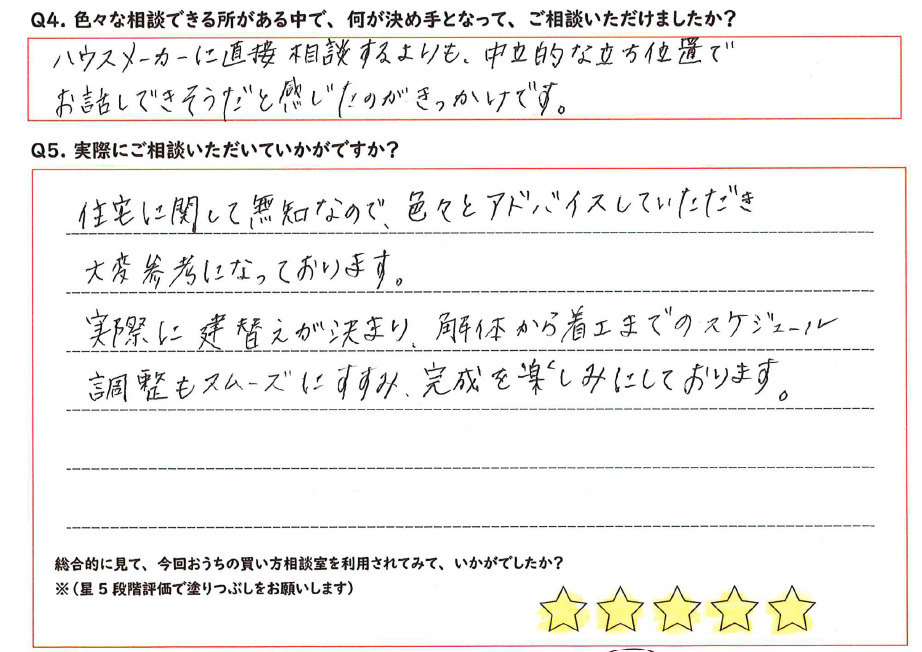 Q4. 色々な相談できる所がある中で、何が決め手となって、ご相談いただけましたか？
ハウスメーカーに直接相談するよりも、中立的な立ち位置で
お話しできそうだと感じたのがきっかけです。
Q5. 実際にご相談いただいていかがですか？
住宅に関して無知なので、色々とアドバイスしていただき
大変参考になっております。
実際に建替えが決まり、解体から着工までのスケジュール
調整もスムーズにすすみ、完成を楽しみにしております。
総合的に見て、今回おうちの買い方相談室を利用されてみて、いかがでしたか？
※（星５段階評価で塗りつぶしをお願いします）